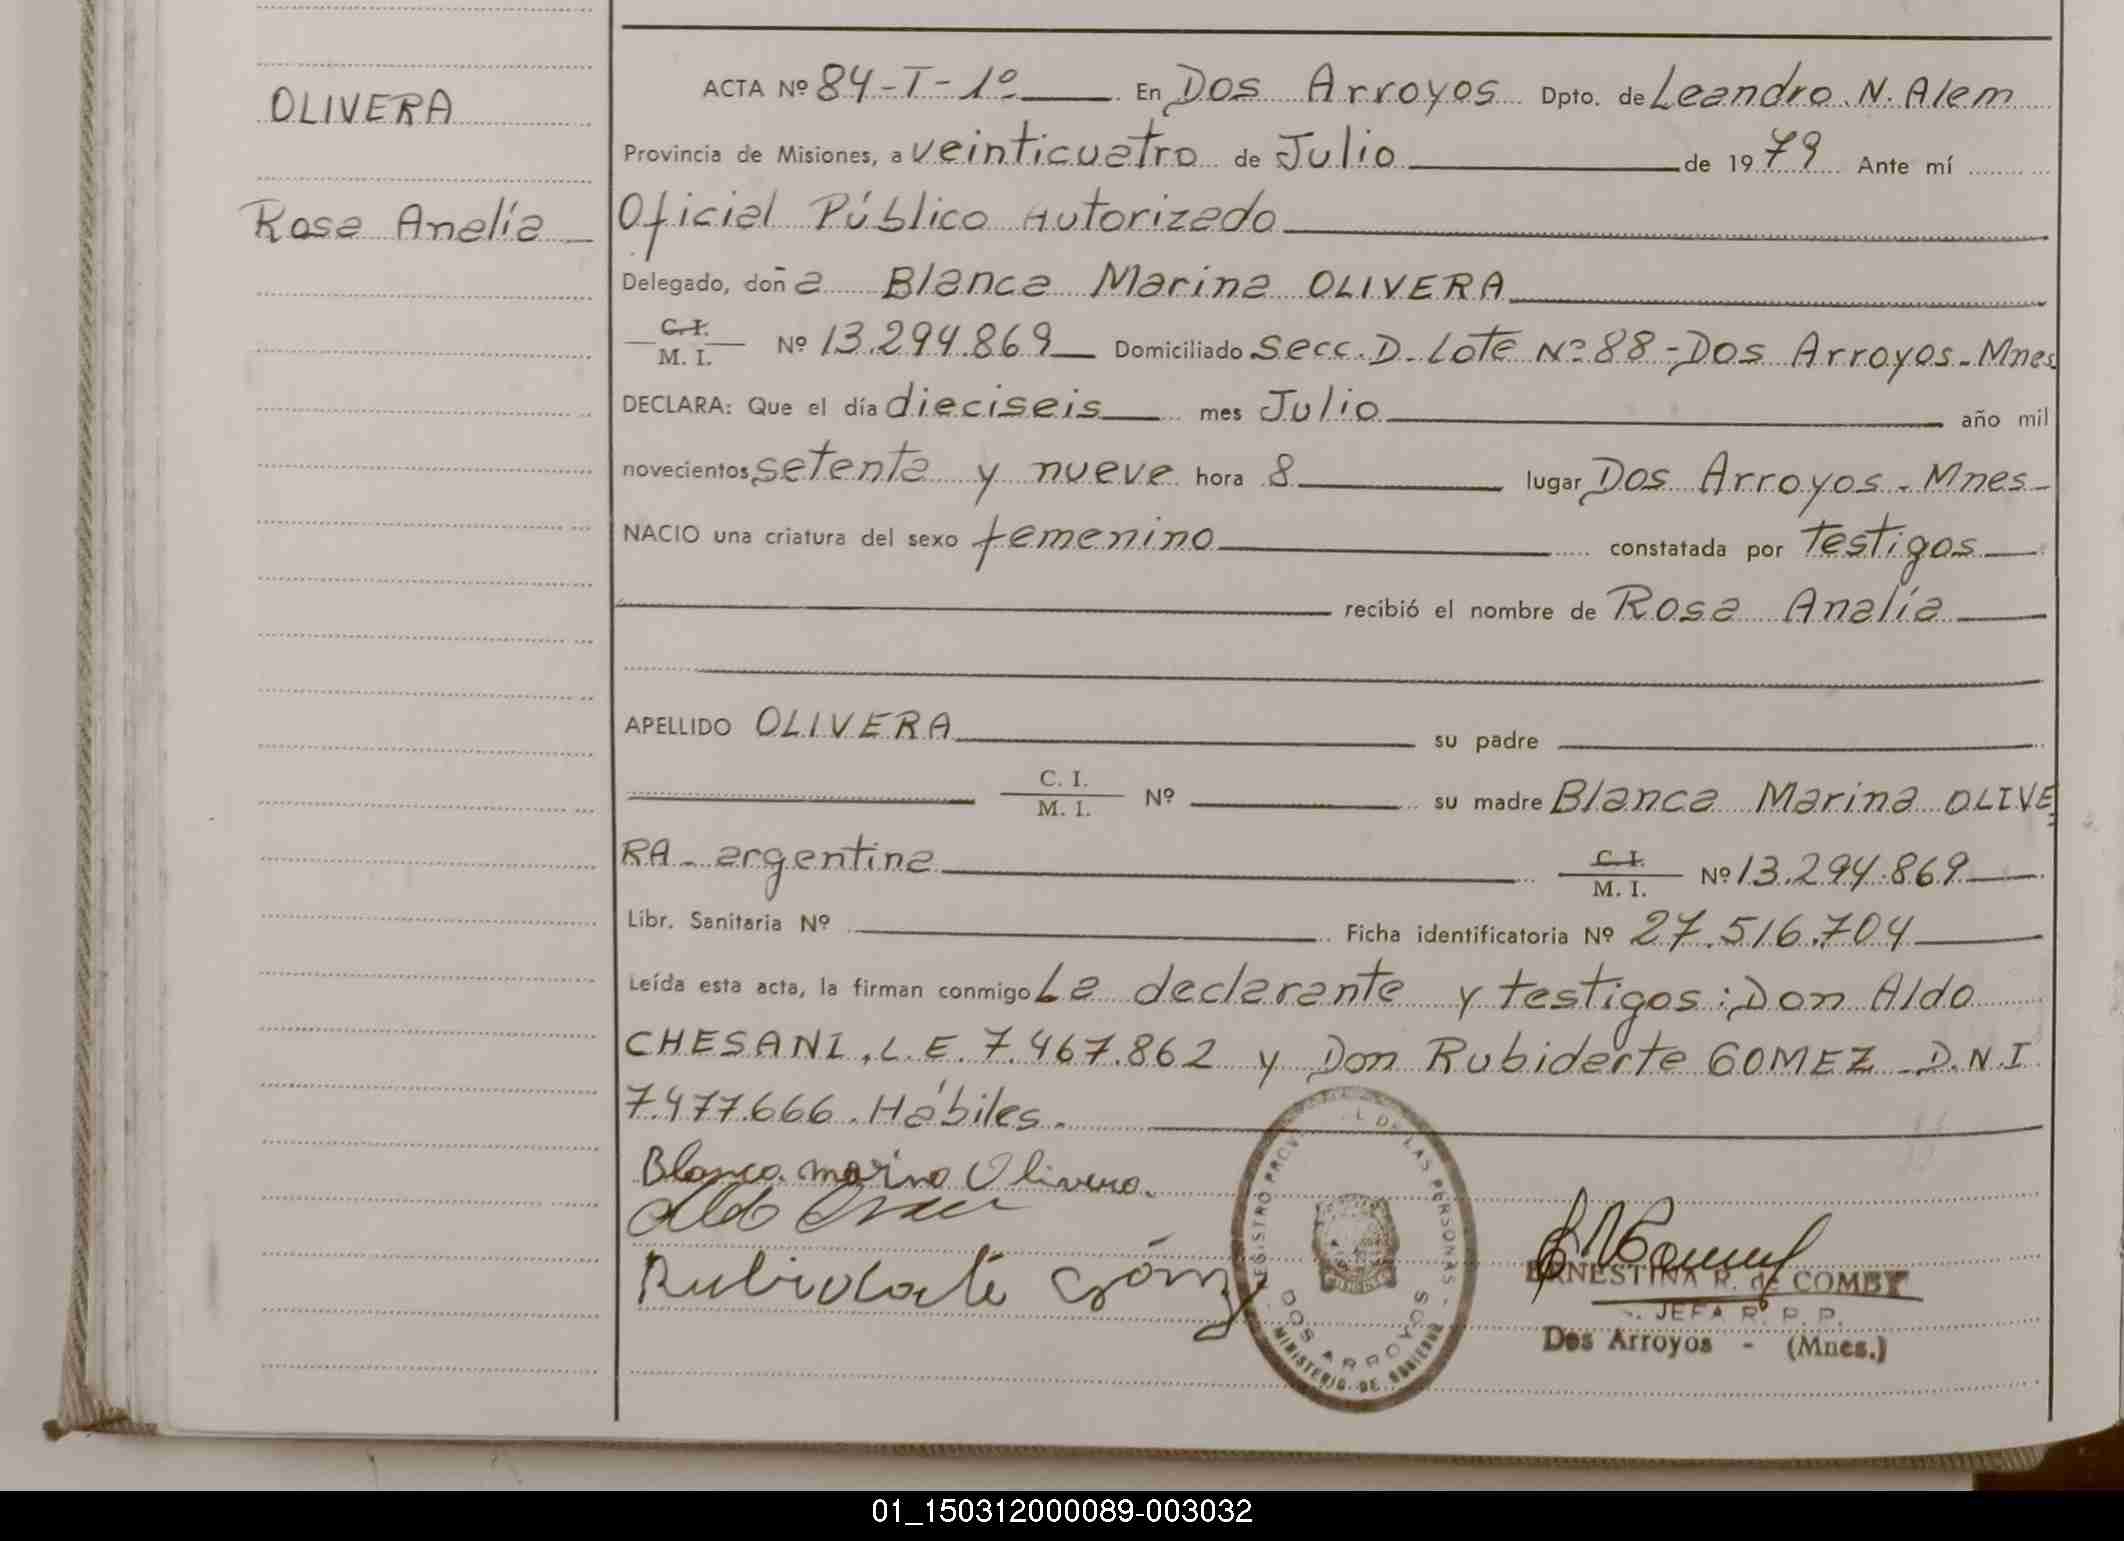 OLIVERA
Rosa Analía
ACTA Nº 84-T-1º En Dos Arroyos Dpto. de Leandro N. Alem
Provincia de Misiones, a veinticuatro de Julio de 1979 Ante mí
Oficial Público Autorizado
Delegado, doña Blanca Marina OLIVERA
C. I.
M. I. Nº 13.294.869 Domiciliado Secc. D. Lote Nº 88 - Dos Arroyos - Mnes
DECLARA: Que el día dieciseis mes Julio año mil
novecientos setenta y nueve hora 8 lugar Dos Arroyos - Mnes -
NACIO una criatura del sexo femenino constatada por testigos
recibió el nombre de Rosa Analía
APELLIDO OLIVERA su padre
C. I.
M. I. Nº su madre Blanca Marina OLIVE
RA - argentina C. I.
M. I. Nº 13.294.869
Libr. Sanitaria Nº Ficha identificatoria Nº 27.516.704
Leída esta acta, la firman conmigo La declarante y testigos: Don Aldo
CHESANI, L.E. 7.467.862 y Don Rubiderte GOMEZ - D.N.I
7.477.666. Hábiles.
Blanca marina Olivera.
Aldo
Gómez
REGISTRO PROV L DE LAS PERSONAS
DOS ARROYOS
MINISTERIO DE GOBIERNO
ERNESTINA R. de COMBY
JEFA R. P. P.
Dos Arroyos - (Mnes.)
01_150312000089-003032